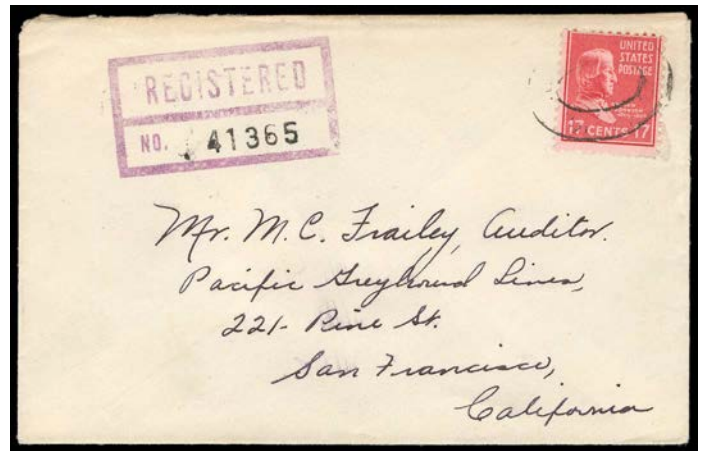 REGISTERED
NO. 41365
UNITED
STATES
POSTAGE
17 CENTS 17
Mr. M. C. Frailey, Auditor.
Pacific Greyhound Lines,
221- Pine St.
San Francisco,
California